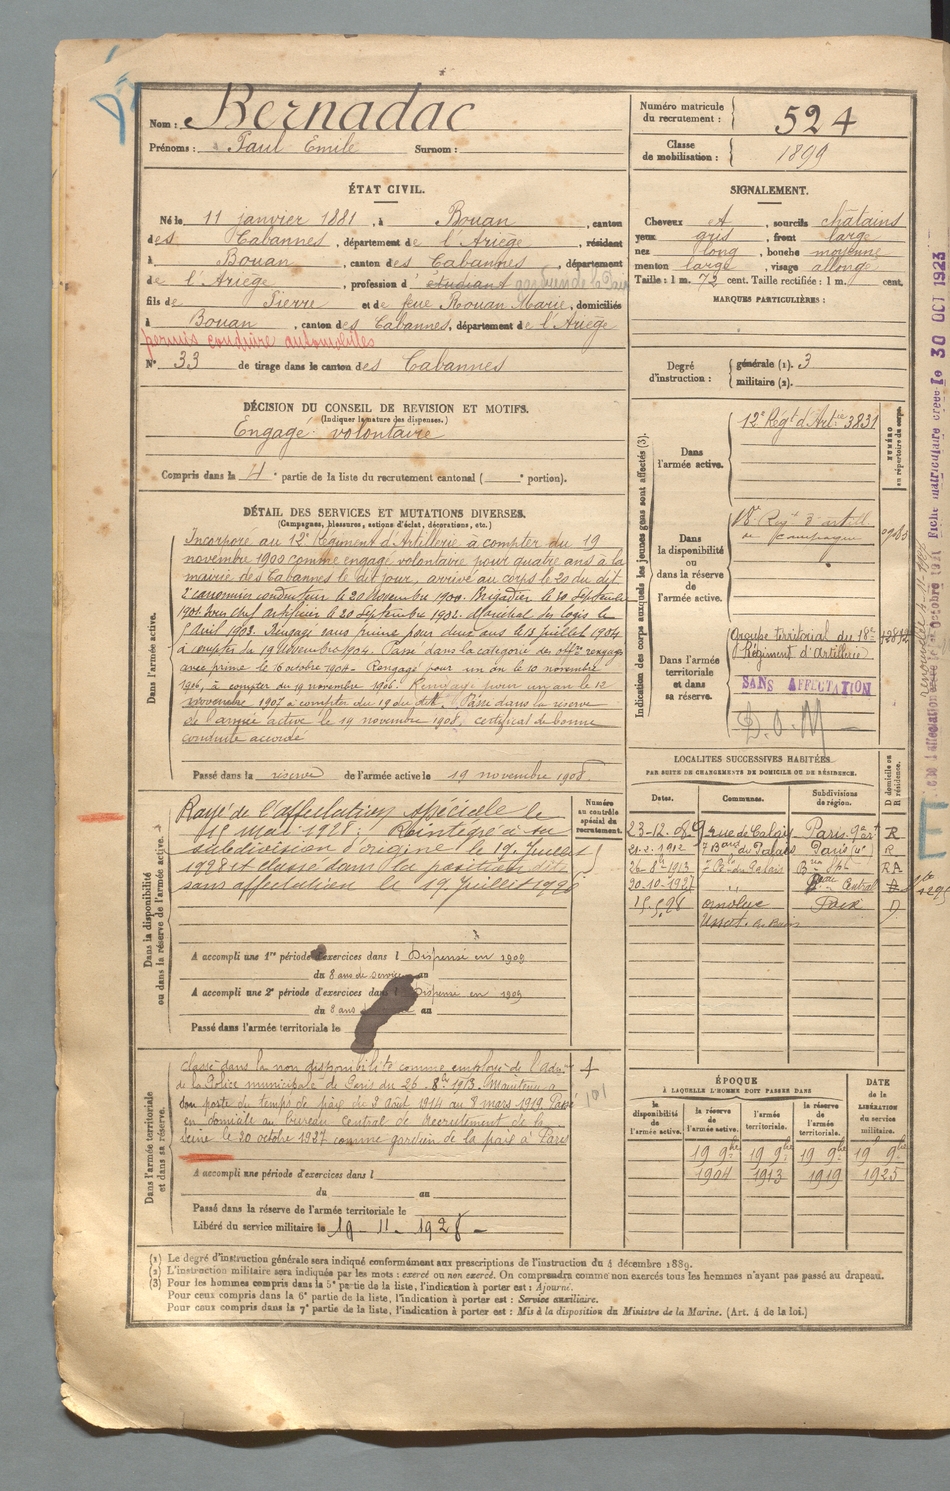 Nom : Bernadac
Prénoms : Paul Emile Surnom :
Numéro matricule du recrutement : 524
Classe de mobilisation : 1899
ÉTAT CIVIL.
Né le 11 janvier 1881, à Bouan, canton
des Cabannes, département de l'Ariège, résidant
à Bouan, canton des Cabannes, département
de l'Ariège, profession d'étudiant gardien de la Paix
fils de Pierre et de feue Rouan Marie, domiciliés
à Bouan, canton des Cabannes, département de l'Ariège
permis conduire automobiles
N° 33 de tirage dans le canton des Cabannes
SIGNALEMENT.
Cheveux et, sourcils chatains
yeux gris, front large
nez long, bouche moyenne
menton large, visage allongé
Taille : 1 m. 72 cent. Taille rectifiée : 1 m. cent.
MARQUES PARTICULIÈRES :
Degré d'instruction : générale (1). 3
militaire (2).
DÉCISION DU CONSEIL DE REVISION ET MOTIFS.
(Indiquer la nature des dispenses.)
Engagé volontaire
Compris dans la 4e partie de la liste du recrutement cantonal ( e portion).
DÉTAIL DES SERVICES ET MUTATIONS DIVERSES.
(Campagnes, blessures, actions d'éclat, décorations, etc.)
Dans l'armée active.
Incorporé au 12e Régiment d'Artillerie à compter du 19
novembre 1900 comme engagé volontaire pour quatre ans à la
mairie des Cabannes le dit jour, arrivé au corps le 20 du dit
2e canonnier conducteur le 20 Novembre 1900. Brigadier le 20 Septembre
1901. Sous chef artificier le 20 Septembre 1902. Maréchal des logis le
5 avril 1903. Rengagé sans prime pour deux ans le 13 juillet 1904
à compter du 19 novembre 1904. Passé dans la catégorie des rengagés
avec prime le 16 octobre 1904. Rengagé pour un an le 10 novembre
1906, à compter du 19 novembre 1906. Rengagé pour un an le 12
novembre 1907 à compter du 19 du dit. Passé dans la réserve
de l'armée active le 19 novembre 1908, certificat de bonne
conduite accordé
Passé dans la réserve de l'armée active le 19 novembre 1908.
Indication des corps auxquels les jeunes gens sont affectés (3).
NUMÉRO au répertoire du corps.
Dans l'armée active.
12e Régt d'Artie 3831
Dans la disponibilité ou dans la réserve de l'armée active.
18e Regt d'art
de campagne
Dans l'armée territoriale et dans sa réserve.
Groupe territorial du 18e
Régiment d'Artillerie
SANS AFFECTATION
LOCALITÉS SUCCESSIVES HABITÉES
PAR SUITE DE CHANGEMENTS DE DOMICILE OU DE RÉSIDENCE.
Dates. Communes. Subdivisions de région. D domicile ou R résidence.
23-12-08 9 rue de Calais Paris 9e art R
21-2-1912 7 Bard du Palais Paris (4e) R
26-8-1913 7 Bd du Palais RA
20.10.1927 " Central
15.5.28 Ornolac Foix D
Ussat les Bains
Dans la disponibilité ou dans la réserve de l'armée active.
Numéro au contrôle spécial du recrutement.
Rayé de l'affectation spéciale le
15 Mai 1928. Réintégré à sa
subdivision d'origine le 19 Juillet
1928 et classé dans la position dite
sans affectation le 19 Juillet 1928
A accompli une 1re période d'exercices dans l Dispensé en 1909
du 8 ans de service au
A accompli une 2e période d'exercices dans l Dispensé en 1909
du 8 ans au
Passé dans l'armée territoriale le
Dans l'armée territoriale et dans sa réserve.
classé dans la non disponibilité comme employé de l'adon
de la Police municipale de Paris du 26 8bre 1913. Maintenu à
son poste du temps de paix du 3 août 1914 au 8 mars 1919. Passé
en domicile au bureau Central de Recrutement de la
Seine le 20 octobre 1927 comme gardien de la paix à Paris
101
A accompli une période d'exercices dans l
du au
Passé dans la réserve de l'armée territoriale le
Libéré du service militaire le 19-11-1928
ÉPOQUE
À LAQUELLE L'HOMME DOIT PASSER DANS
DATE de la LIBÉRATION du service militaire.
la disponibilité de l'armée active. la réserve de l'armée active. l'armée territoriale. la réserve de l'armée territoriale.
19 9bre 1904 19 9bre 1913 19 9bre 1919 19 9bre 1925
(1) Le degré d'instruction générale sera indiqué conformément aux prescriptions de l'instruction du 4 décembre 1889.
(2) L'instruction militaire sera indiquée par les mots : exercé ou non exercé. On comprendra comme non exercés tous les hommes n'ayant pas passé au drapeau.
(3) Pour les hommes compris dans la 5e partie de la liste, l'indication à porter est : Ajourné.
Pour ceux compris dans la 6e partie de la liste, l'indication à porter est : Service auxiliaire.
Pour ceux compris dans la 7e partie de la liste, l'indication à porter est : Mis à la disposition du Ministre de la Marine. (Art. 4 de la loi.)
Fiche matriculaire créée le 30 OCT 1923